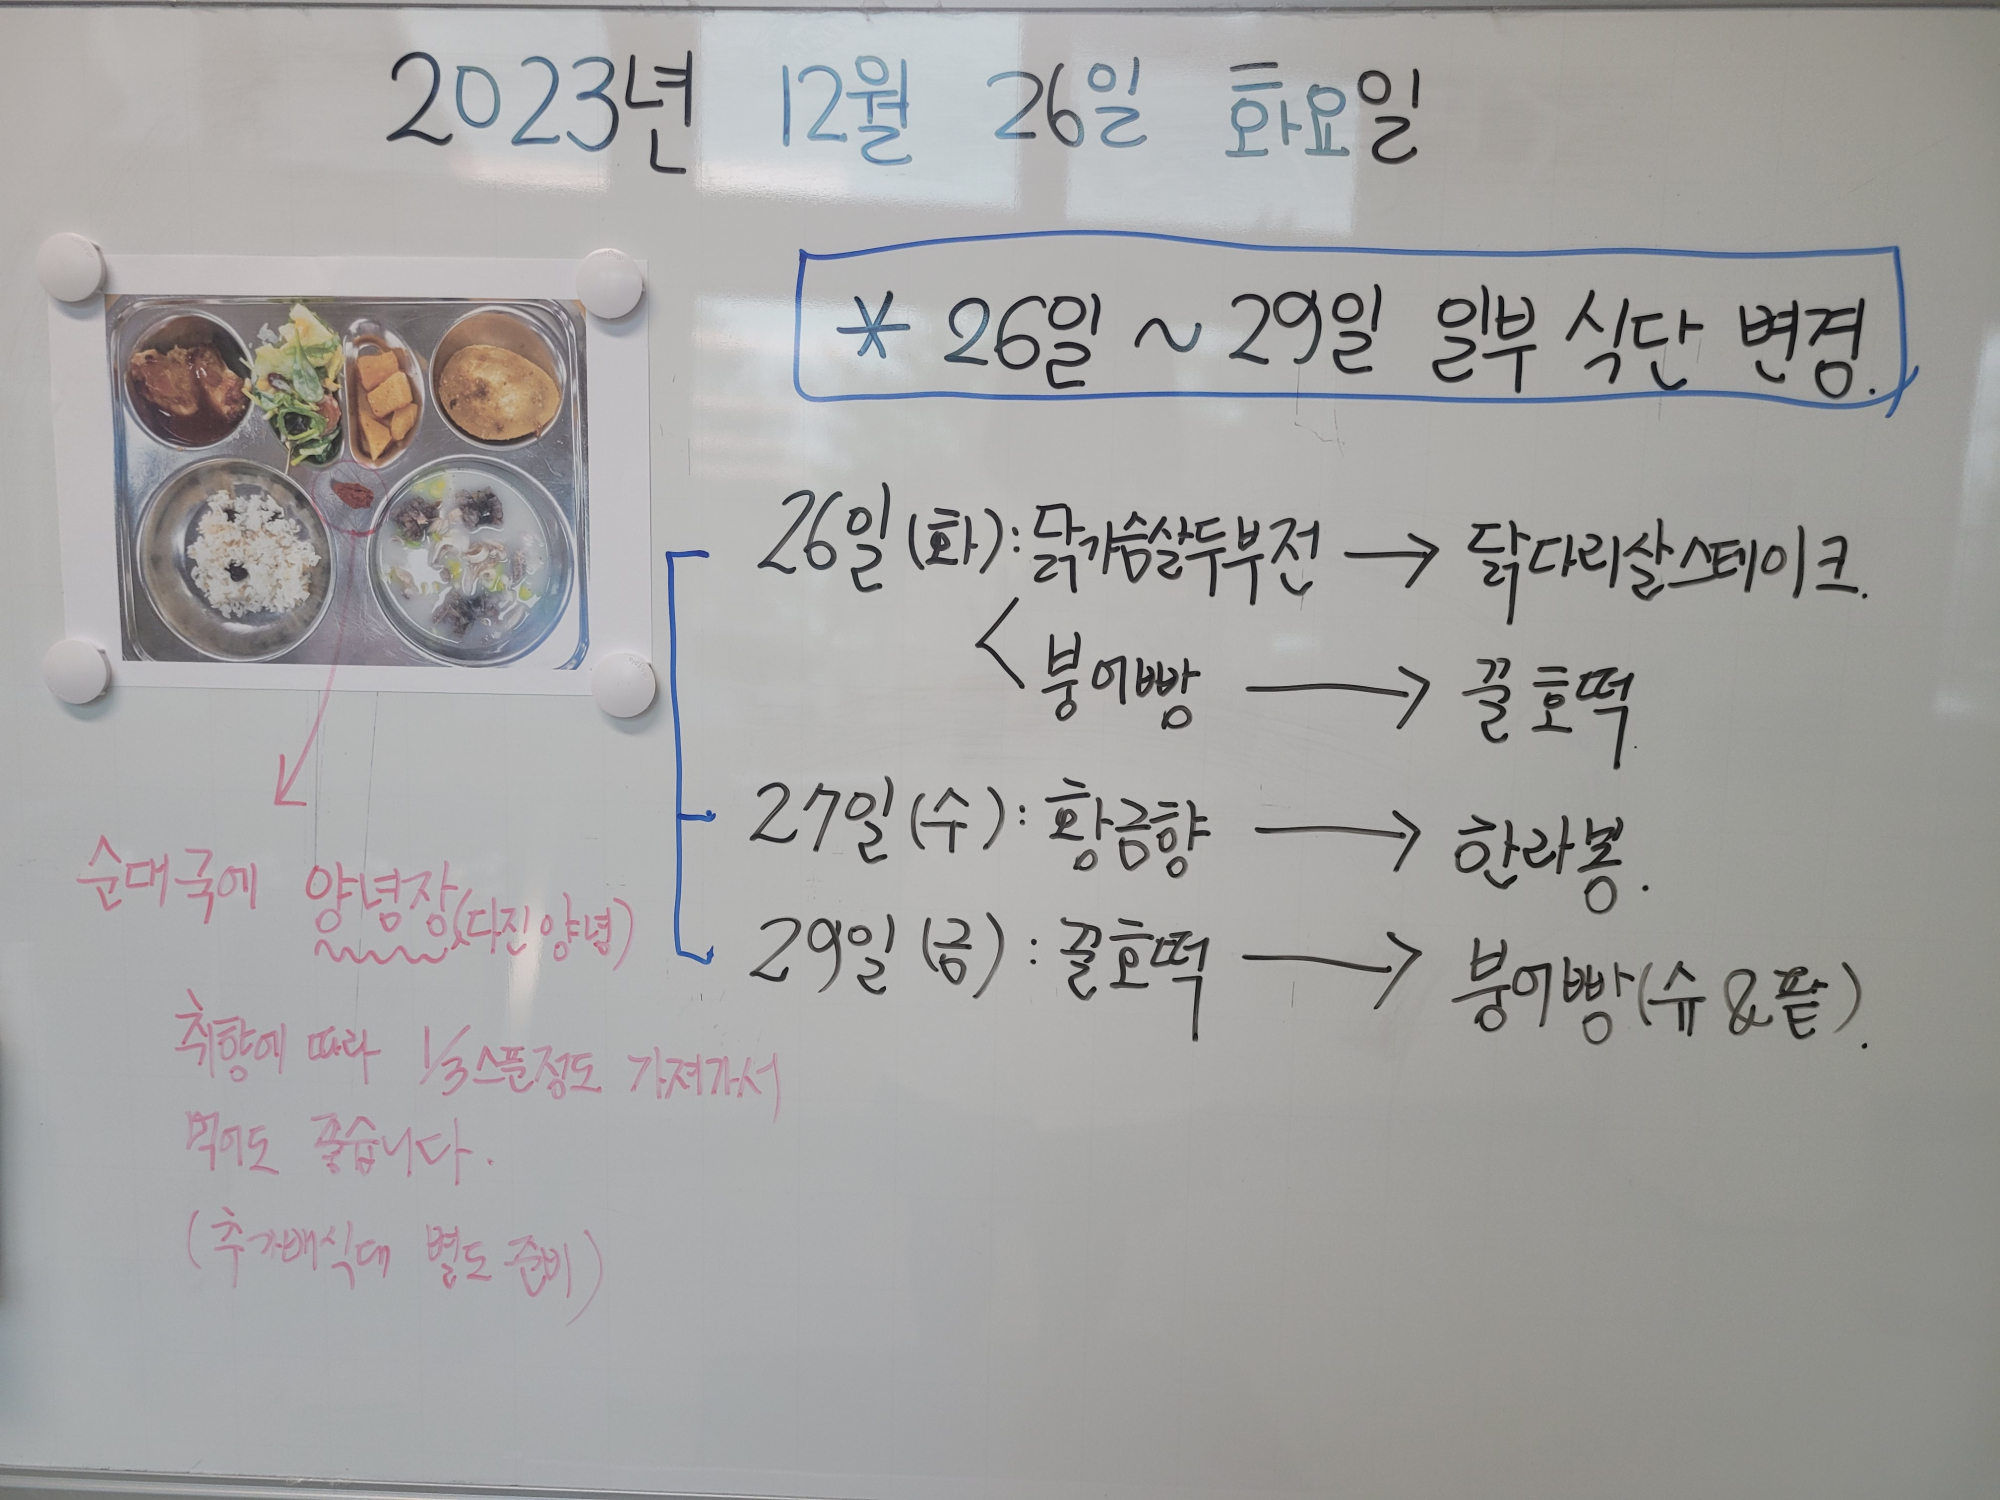 2023년 12월 26일 화요일
* 26일 ~ 29일 일부 식단 변경.
26일 (화) : 닭가슴살두부전 → 닭다리살스테이크.
< 붕어빵 → 꿀호떡.
27일 (수) : 황금향 → 한라봉.
29일 (금) : 꿀호떡 → 붕어빵(슈&팥).
순대국에 양념장(다진양념)
취향에 따라 1/3스푼정도 가져가서
먹어도 좋습니다.
(추가배식대 별도 준비)